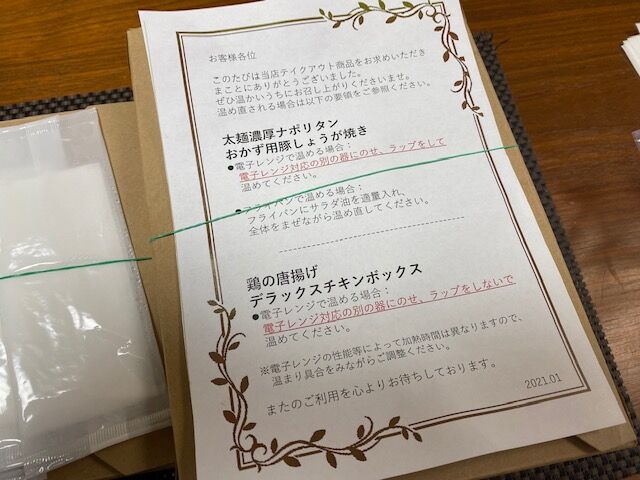 お客様各位
このたびは当店テイクアウト商品をお求めいただき
まことにありがとうございました。
ぜひ温かいうちにお召し上がりくださいませ。
温め直される場合は以下の要領をご参照ください。
太麺濃厚ナポリタン
おかず用豚しょうが焼き
●電子レンジで温める場合：
電子レンジ対応の別の器にのせ、ラップをして
温めてください。
●フライパンで温める場合：
フライパンにサラダ油を適量入れ、
全体をまぜながら温め直してください。
鶏の唐揚げ
デラックスチキンボックス
●電子レンジで温める場合：
電子レンジ対応の別の器にのせ、ラップをしないで
温めてください。
※電子レンジの性能等によって加熱時間は異なりますので、
温まり具合をみながらご調整ください。
またのご利用を心よりお待ちしております。
2021.01